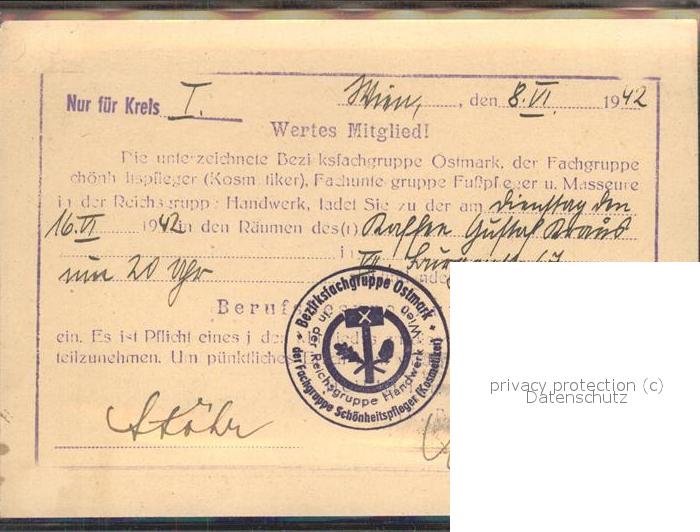 Nur für Kreis I. Wien, , den 8. VI. 1942
Wertes Mitglied!
Die unterzeichnete Bezirksfachgruppe Ostmark, der Fachgruppe
Schönheitspfleger (Kosmetiker), Fachuntergruppe Fußpfleger u. Masseure
in der Reichsgruppe Handwerk, ladet Sie zu der am Dienstag den
16. VI 1942 in den Räumen des(r) Kaffee Gustav Kraus
um 20 Uhr
ein. Es ist Pflicht eines
teilzunehmen. Um pünktliches
Bezirksfachgruppe Ostmark
der Fachgruppe Schönheitspfleger (Kosmetiker)
in der Reichsgruppe Handwerk Wien
Stöhr
privacy protection (c)
Datenschutz